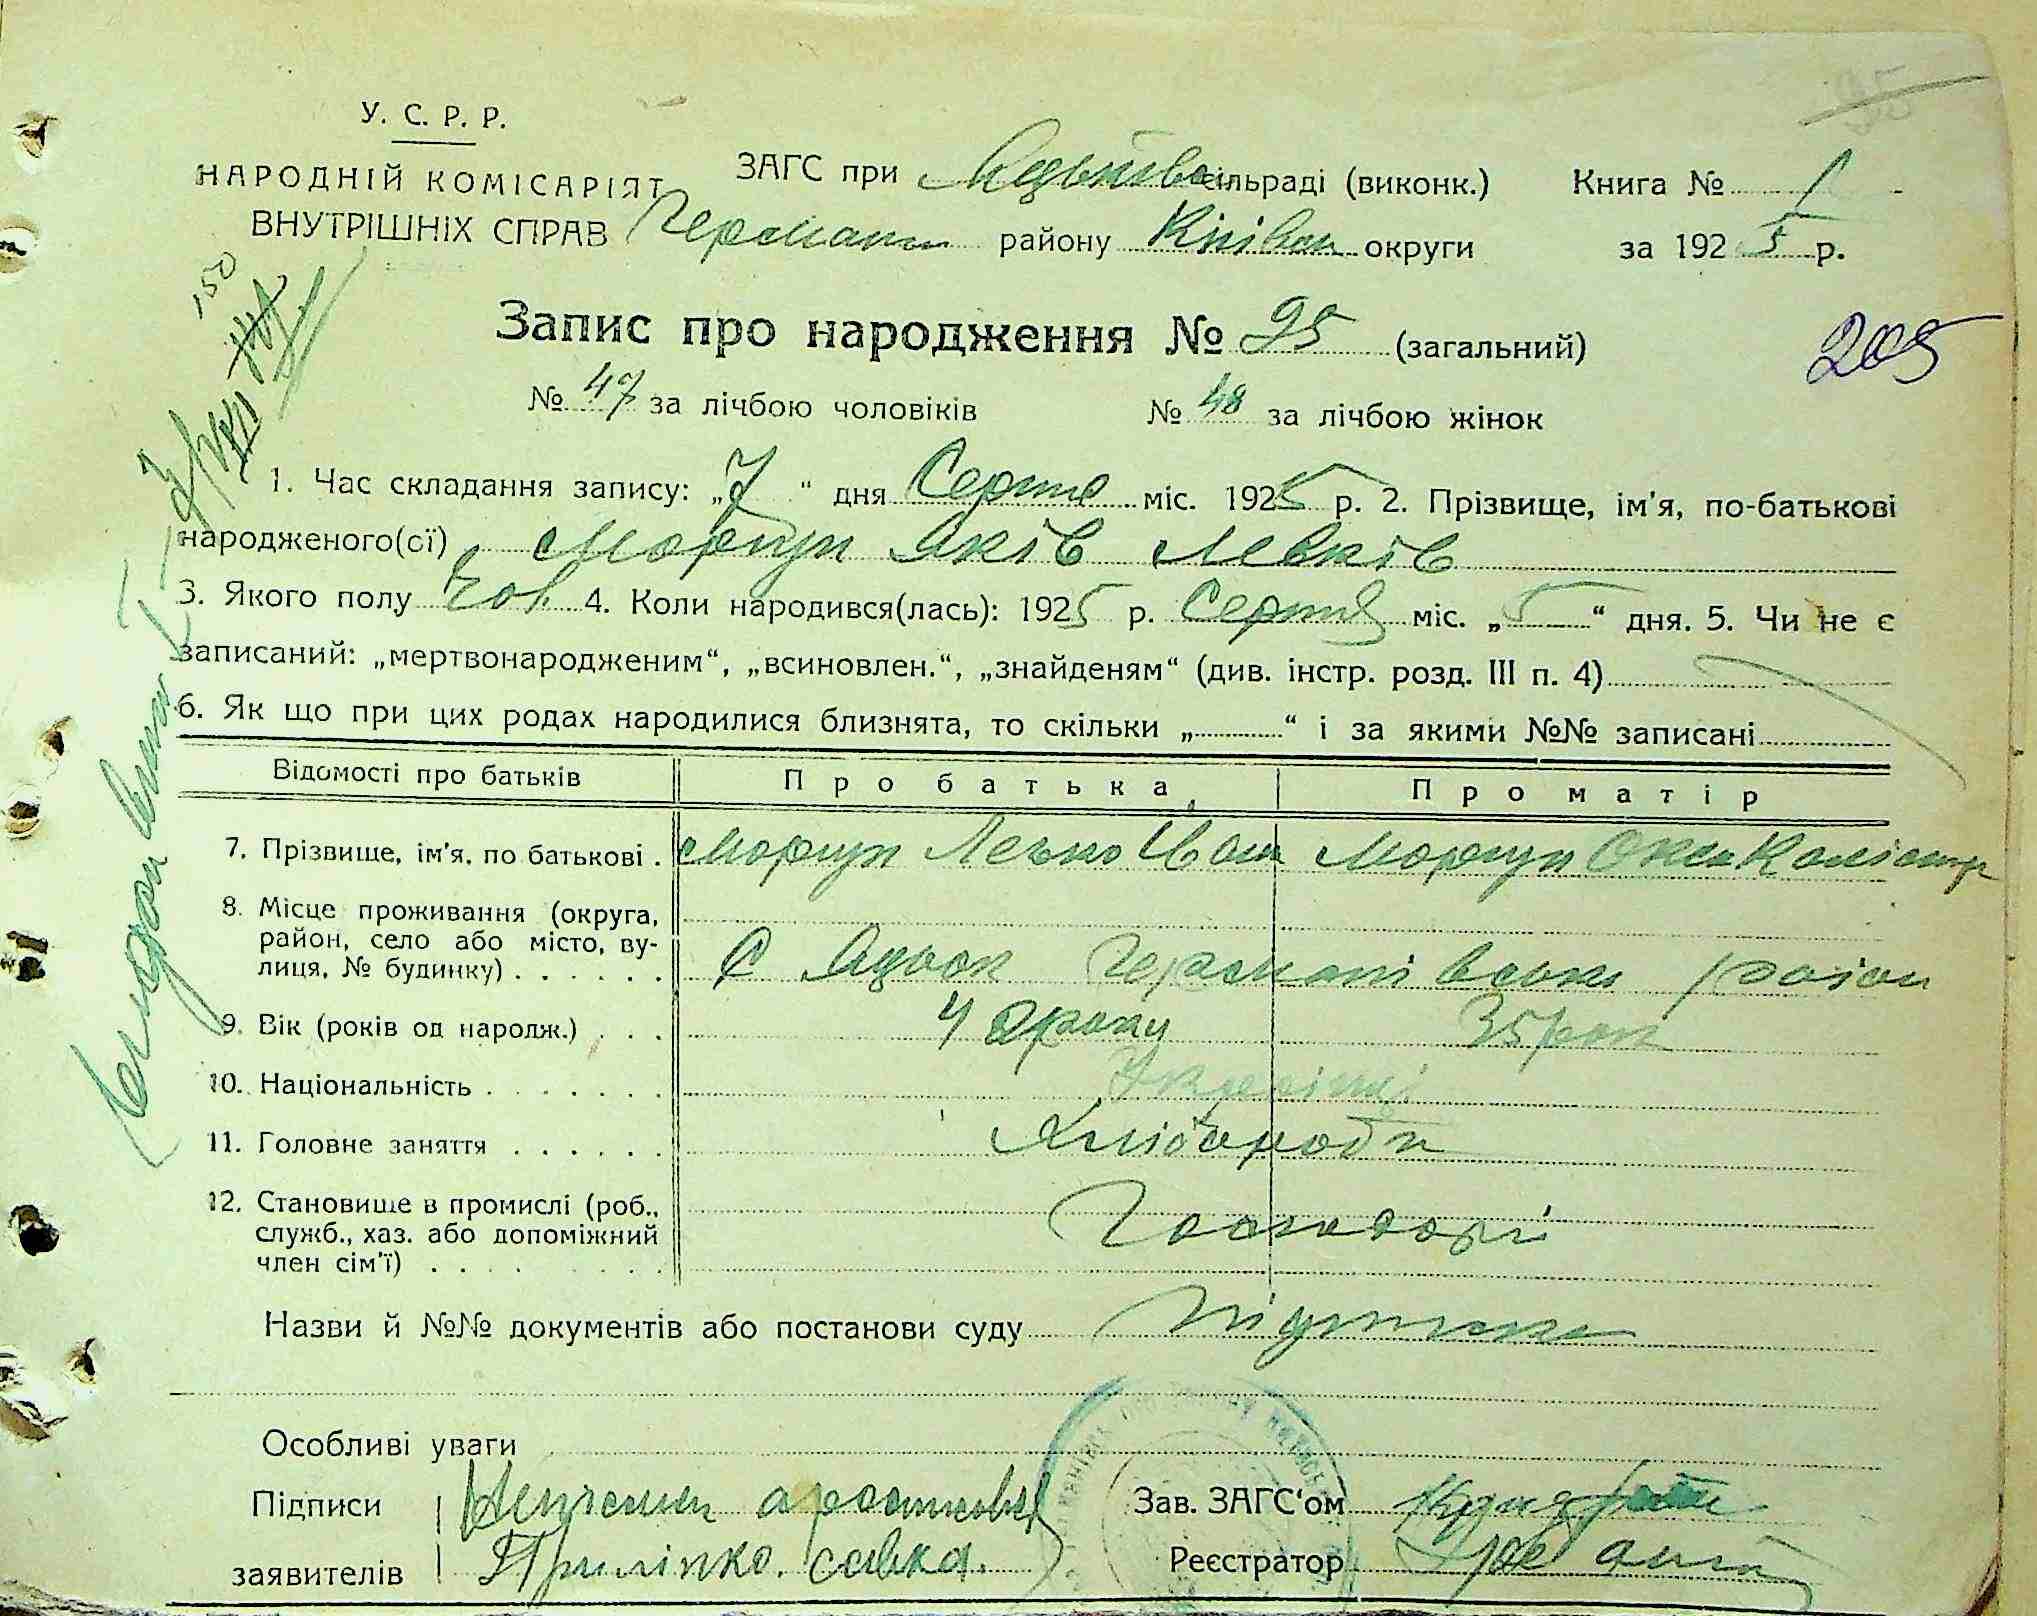 95
У. С. Р. Р.
НАРОДНІЙ КОМІСАРІЯТ
ВНУТРІШНІХ СПРАВ
ЗАГС при сільраді (виконк.) Книга № 1
Германи району Київськ округи за 1925 р.
150
Запис про народження № 95 (загальний)
205
№ 47 за лічбою чоловіків № 48 за лічбою жінок
1. Час складання запису: „7" дня Серпня міс. 1925 р. 2. Прізвище, ім'я, по-батькові
народженого(ої) Моргун Яків Левків
3. Якого полу Чол. 4. Коли народився(лась): 1925 р. Серпня міс. „5" дня. 5. Чи не є
записаний: „мертвонародженим", „всиновлен.", „знайденям" (див. інстр. розд. III п. 4)
6. Як що при цих родах народилися близнята, то скільки „ " і за якими №№ записані
Відомості про батьків Про батька Про матір
7. Прізвище, ім'я, по батькові . Моргун Левко Іван Моргун Окс Калістр
8. Місце проживання (округа,
район, село або місто, ву-
лиця, № будинку) . . . . . . С Яцьок Германівськи район
9. Вік (років од народж.) . . . 42 роки 35 рок
10. Національність . . . . . . . Українці
11. Головне заняття . . . . . . Хлібороби
12. Становище в промислі (роб.,
служб., хаз. або допоміжний
член сім'ї) . . . . . . . . Господарі
Назви й №№ документів або постанови суду
Особливі уваги
Підписи
заявителів Приліпко. савка.
Зав. ЗАГС'ом
Реєстратор